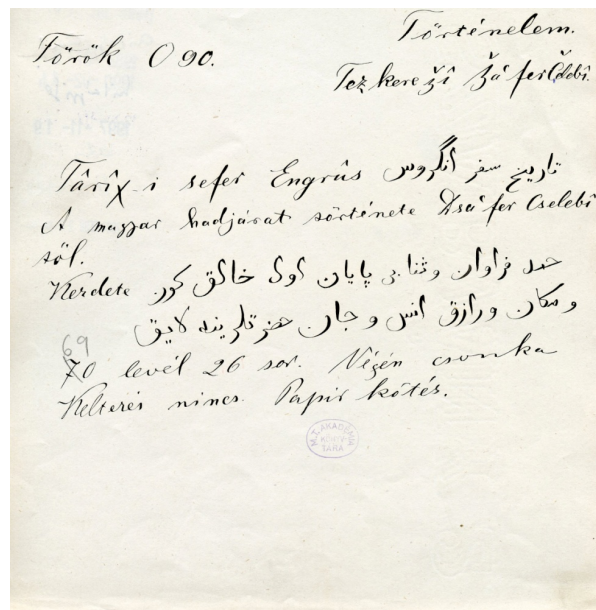 Török O 90.
Történelem.
Tezkereǯî Ǯaʿfer Čelebi.
Târîχ-i sefer Engrûs تاريخ سفر انگروس
A magyar hadjárat története Dsaʿfer Cselebi
től.
Kezdete حمد فراوان وثنا بى پايان اول خالق كون
و مكان ورازق انس و جان حضرتلرينه لايق
69
70 levél 26 sor. Végén csonka
Keltezés nincs. Papir kötés.
M. T. AKADÉMIA
KÖNYV
TÁRA